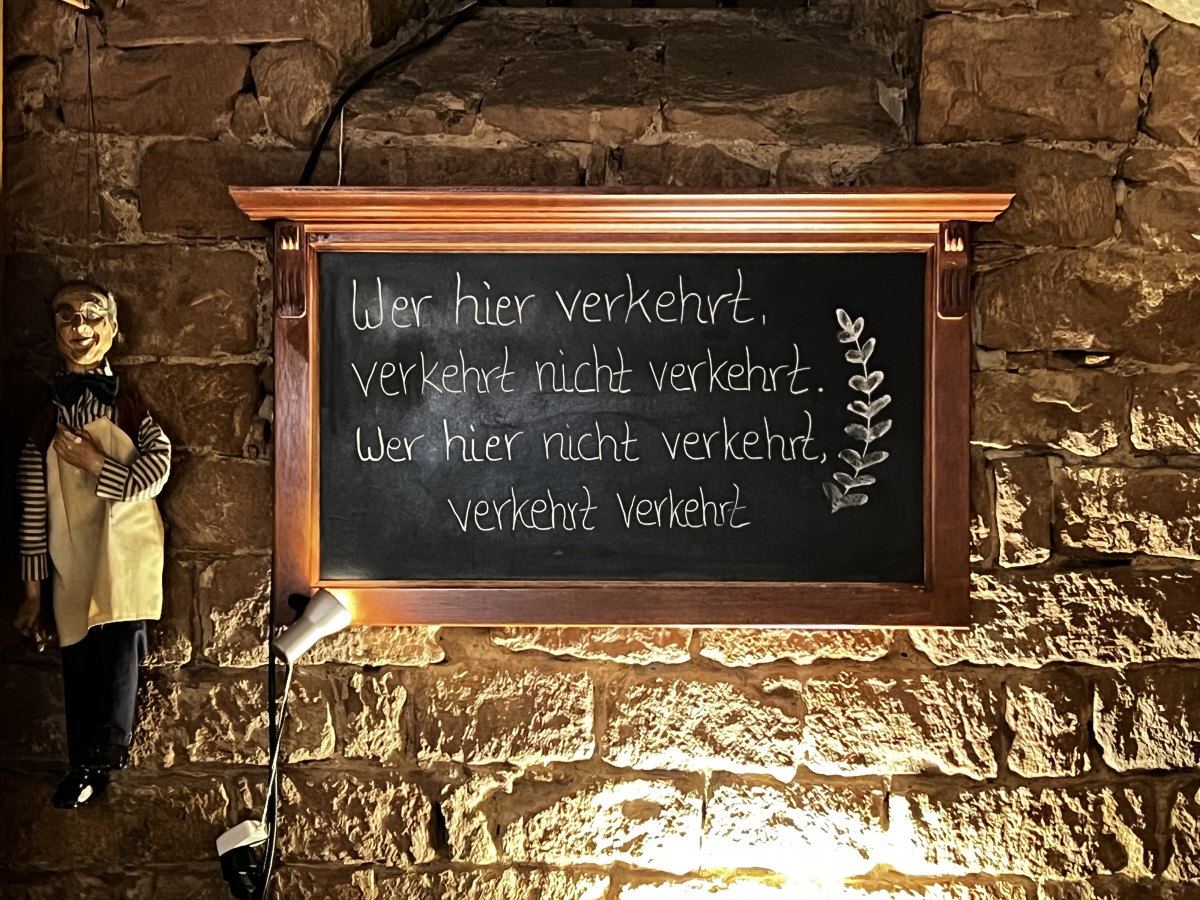 Wer hier verkehrt,
verkehrt nicht verkehrt.
Wer hier nicht verkehrt,
verkehrt verkehrt